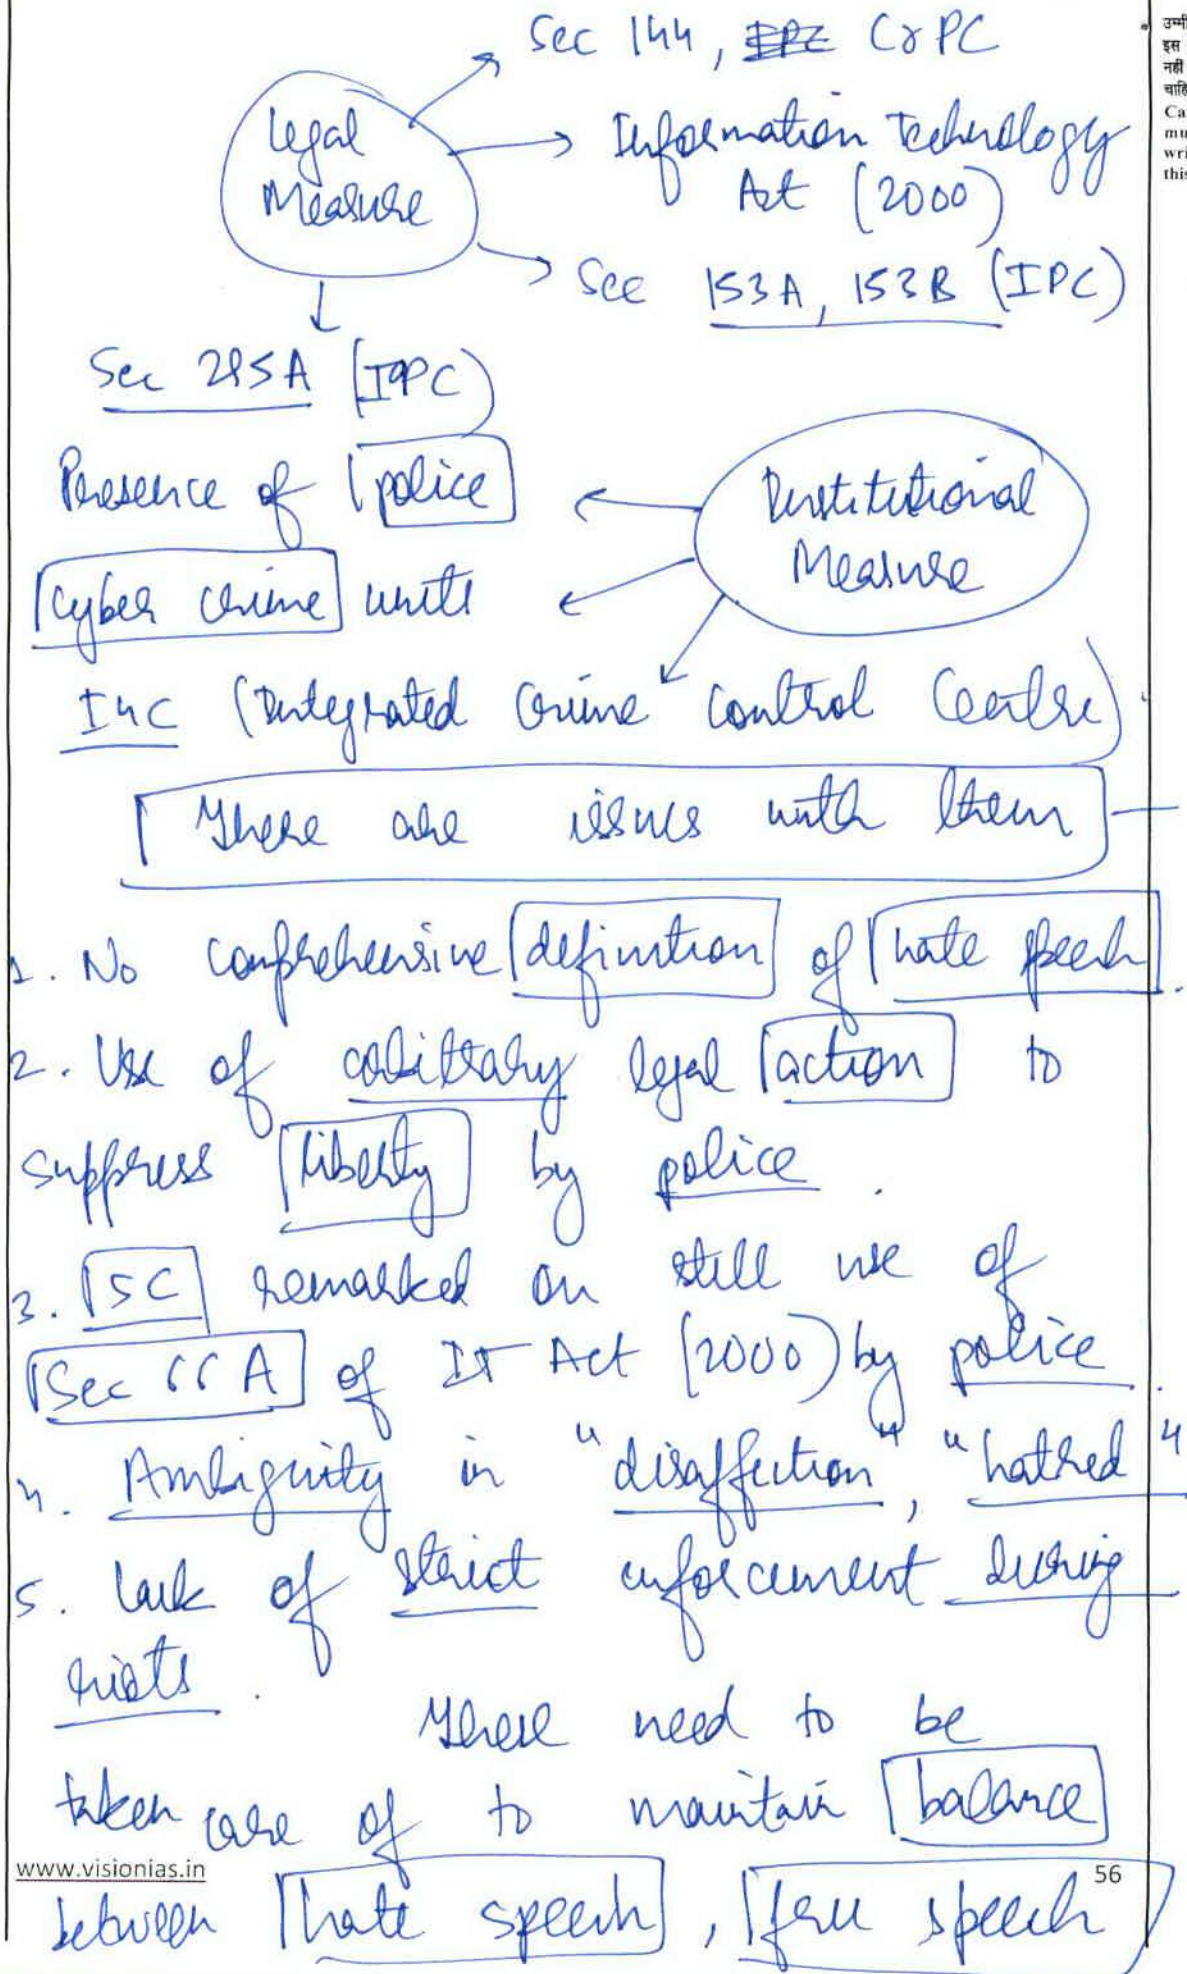 Sec 144, IPC CrPC
Legal
Measure
Information Technology
Act (2000)
Sec 153A, 153B (IPC)
Sec 295A (IPC)
Presence of police
Institutional
Measure
cyber crime units
I4C (Integrated Crime Control Centre)
There are issues with them
1. No comprehensive definition of hate speech.
2. Use of arbitrary legal action to
suppress liberty by police.
3. SC remarked on still use of
Sec 66A of IT Act (2000) by police.
4. Ambiguity in "disaffection", "hatred"
5. Lack of strict enforcement during
riots.
These need to be
taken care of to maintain balance
between hate speech, free speech
www.visionias.in
56
उम्मी
इस
नहीं
चाहि
Ca
mu
wri
this